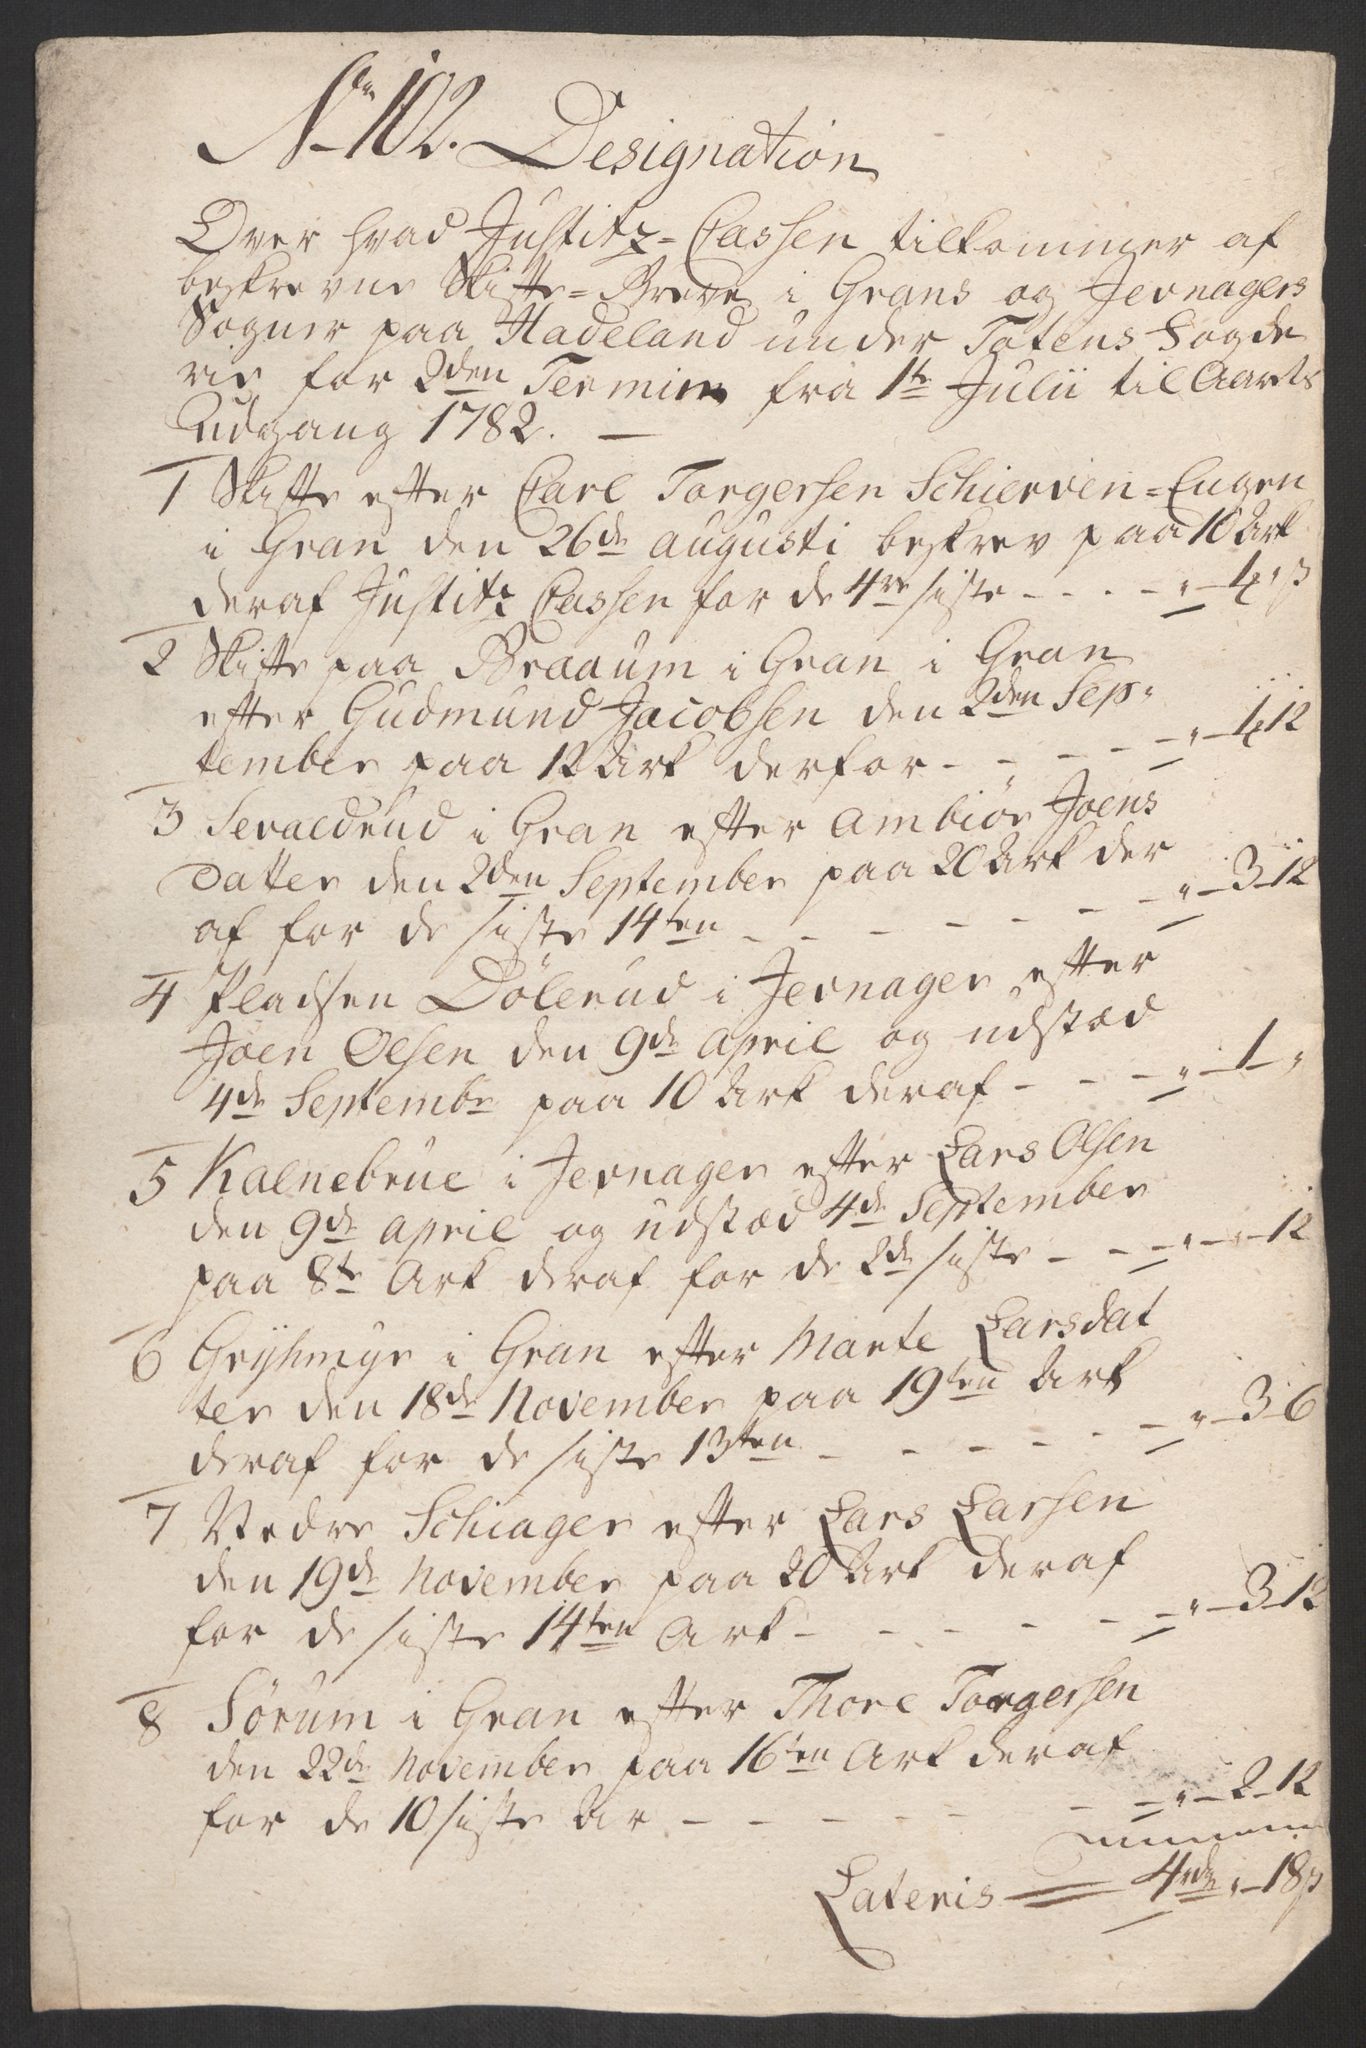 No 102. Designation
Over hvad Justitz-Cassen tilkommer af
beskrevne Skifte-Breve i Grans og Jevnagers
Sogner paa Hadeland under Totens Fogde
rie for 2den Termin fra 1te Julii til Aarets
Udgang 1782. —
1 Skifte efter Carl Torgersen Schierven-Eugen
i Gran den 26de augusti beskrev paa 10 Ark
deraf Justitz Cassen for de 4re siste - - - - " - 1 " ß
2 Skifte paa Braaum i Gran i Gran
efter Gudmund Jacobsen den 2den Sep-
tember paa 12 Ark derfor - - - - - " - 1 12
3 Sevaldrud i Gran efter Ambiør Joens
Datter den 2den September paa 20 Ark der
af for de siste 14ten - - - - - - - " - 3 - 12
4 Pladsen Dølerud i Jevnager efter
Joen Olsen den 9de April og udstæd
4de Septembr paa 10 Ark deraf - - - " - 1 - "
5 Kalnebrue i Jevnager efter Lars Olsen
den 9de April og udstæd 4de September
paa 8te Ark deraf for de 2de siste - - - " - " - 12
6 Gryhmyr i Gran efter Marte Larsdat
ter den 18de November paa 19ten Ark
deraf for de siste 13ten - - - - - - " - 3 - 6
7 Nedre Schiager efter Lars Larsen
den 19de November paa 20 Ark deraf
for de siste 14ten Ark - - - - - - " - 3 - 12
8 Sørum i Gran efter Thore Torgersen
den 22de November paa 16ten Ark deraf
for de 10 siste Ar - - - - - - - " - 2 - 12
Lateris — 4rdr " - 18 ß